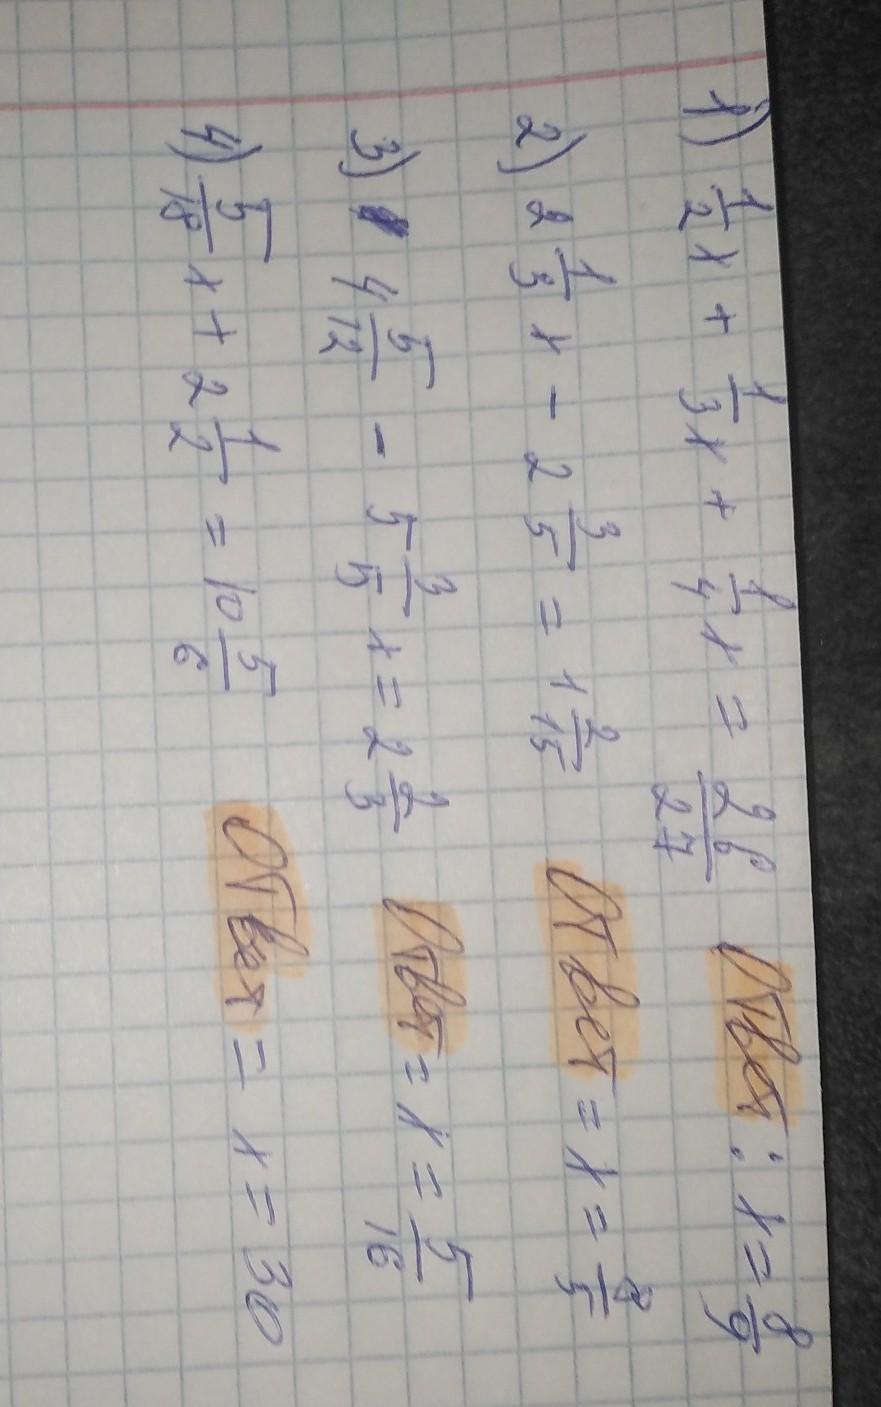 1) 1/2 x + 1/3 x + 1/4 x = 26/27 Ответ: x = 8/9
2) 2 1/3 x - 2 3/5 = 1 2/15 Ответ = x = 8/5
3) 4 5/12 - 5 3/5 x = 2 2/3 Ответ = x = 5/16
4) 5/18 x + 2 1/2 = 10 5/6 Ответ = x = 30